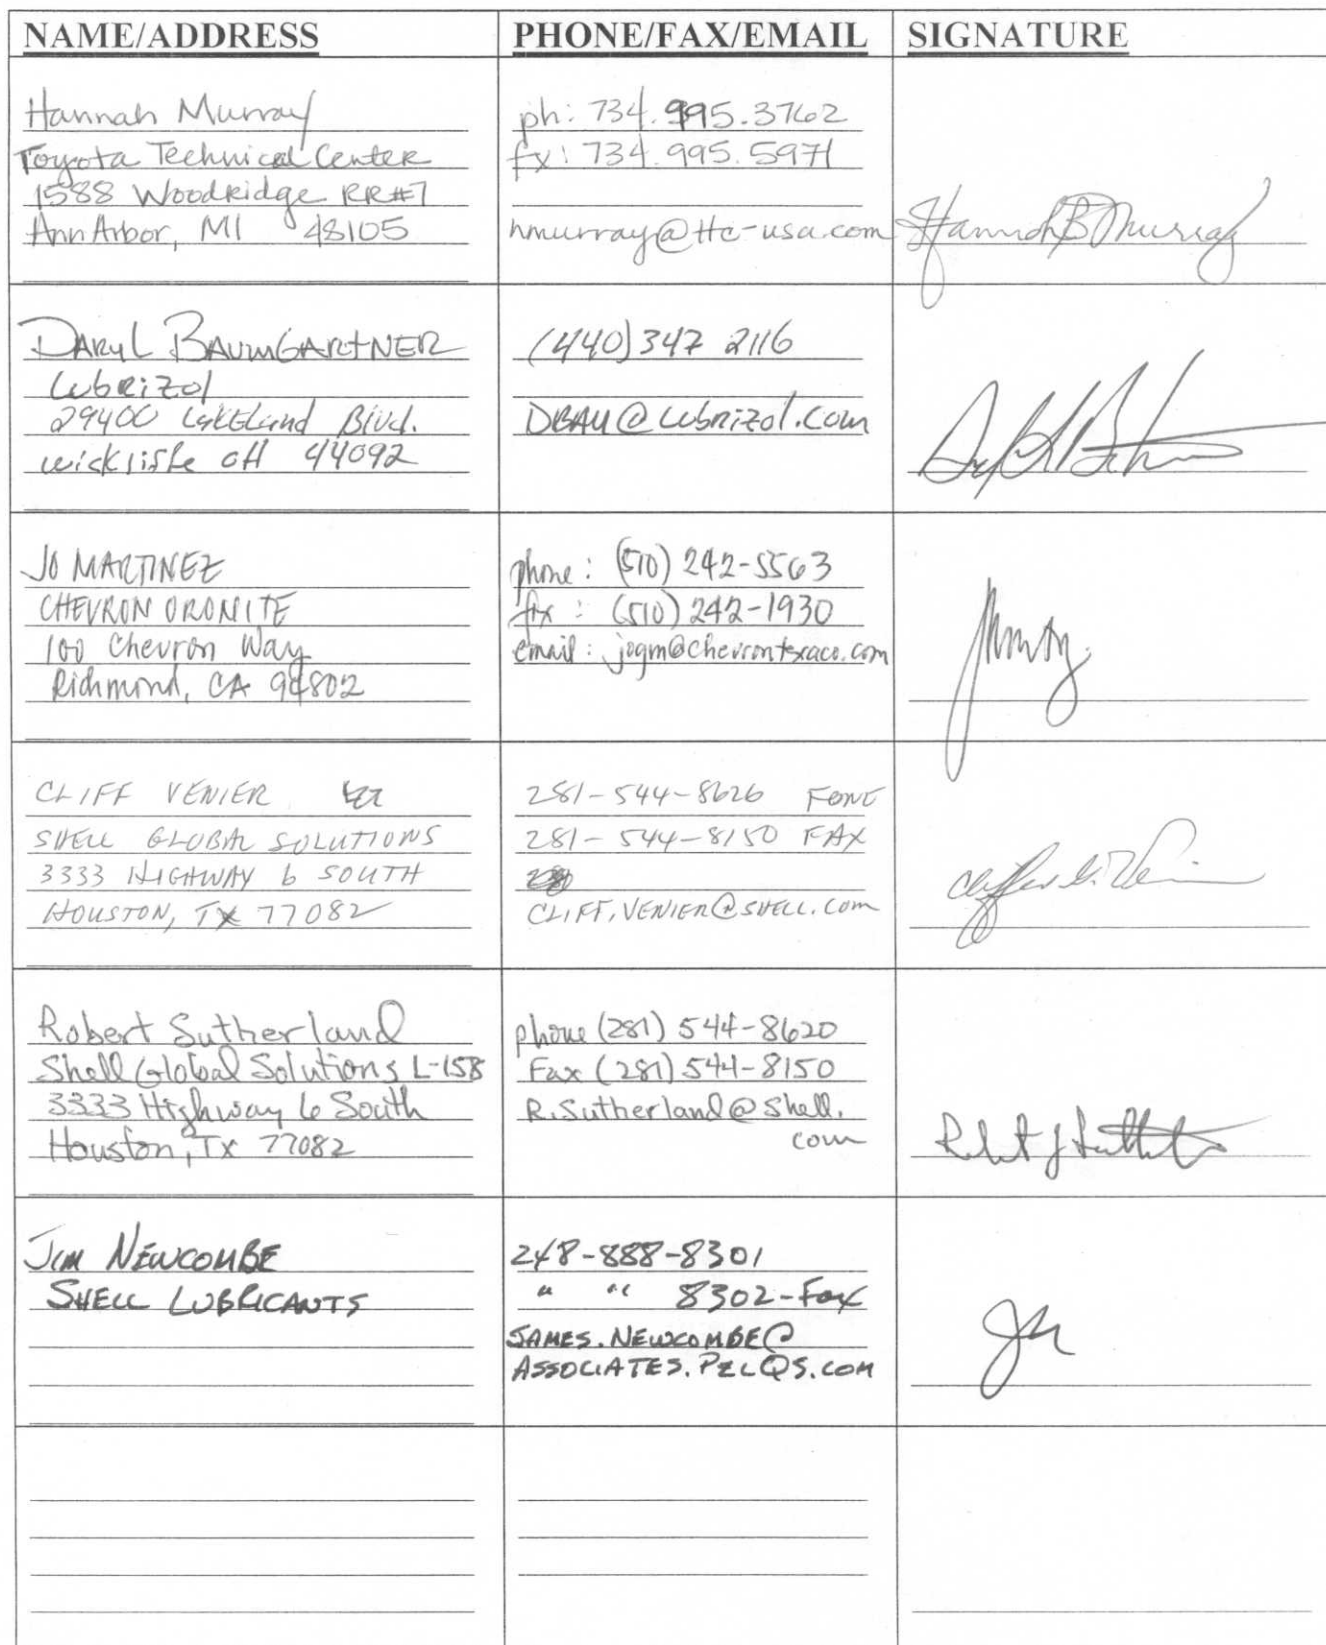 NAME/ADDRESS
PHONE/FAX/EMAIL
SIGNATURE
Hannah Murray
Toyota Technical Center
1588 Woodridge RR#7
Ann Arbor, MI 48105
ph: 734.995.3762
fx: 734.995.5971
hmurray@ttc-usa.com
Hannah B Murray
DARYL BAUMGARTNER
Lubrizol
29400 LAKELand Blvd.
wickliffe OH 44092
(440) 347 2116
DBAU@Lubrizol.com
JO MARTINEZ
CHEVRON ORONITE
100 Chevron Way
Richmond, CA 94802
phone: (510) 242-5563
fx : (510) 242-1930
email: jogm@chevrontexaco.com
CLIFF VENIER
SHELL GLOBAL SOLUTIONS
3333 HIGHWAY 6 SOUTH
HOUSTON, TX 77082
281-544-8626 FONE
281-544-8150 FAX
CLIFF.VENIER@SHELL.COM
Robert Sutherland
Shell Global Solutions L-158
3333 Highway 6 South
Houston, Tx 77082
phone (281) 544-8620
Fax (281) 544-8150
R.Sutherland@Shell.
com
JIM NEWCOMBE
SHELL LUBRICANTS
248-888-8301
" " 8302-Fax
JAMES.NEWCOMBE@
ASSOCIATES.PZLQS.COM